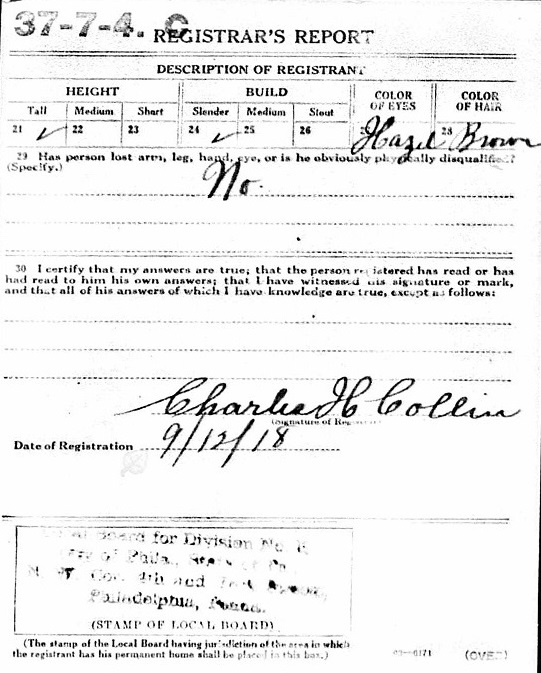 37-7-4. C
REGISTRAR'S REPORT
DESCRIPTION OF REGISTRANT
HEIGHT BUILD COLOR OF EYES COLOR OF HAIR
Tall Medium Short Slender Medium Stout
21 ✓ 22 23 24 ✓ 25 26 Hazel 28 Brown
29 Has person lost arm, leg, hand, eye, or is he obviously physically disqualified?
(Specify.) No.
30 I certify that my answers are true; that the person registered has read or has
had read to him his own answers; that I have witnessed his signature or mark,
and that all of his answers of which I have knowledge are true, except as follows:
Charles H Collin
(Signature of Registrar)
Date of Registration 9/12/18
Local Board for Division No.
City of Phila., State of Pa.
Cor. 4th and
Philadelphia, Penna.
(STAMP OF LOCAL BOARD)
(The stamp of the Local Board having jurisdiction of the area in which
the registrant has his permanent home shall be placed in this box.)
03—6171 (OVER)